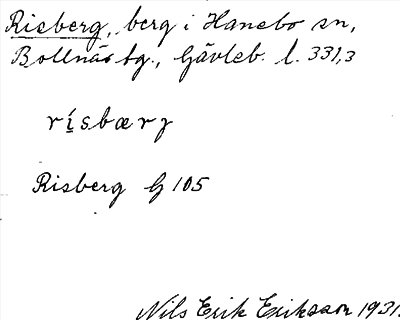 Risberg, berg i Hanebo sn,
Bollnäs tg., Gävleb. l. 331,3
rísbærȝ
Risberg G 105
Nils Erik Eriksson 1931.